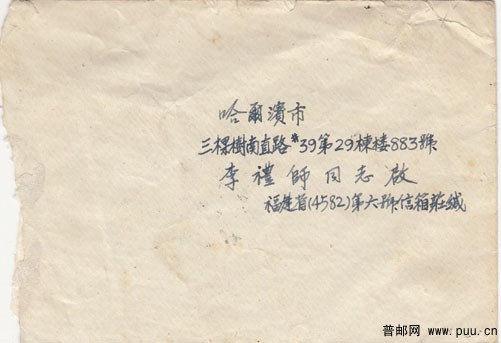 哈爾濱市
三棵樹南直路#39第29棟楼883號
李禮師同志啟
福建省(4582)第六號信箱莊緘
普邮网 www.puu.cn